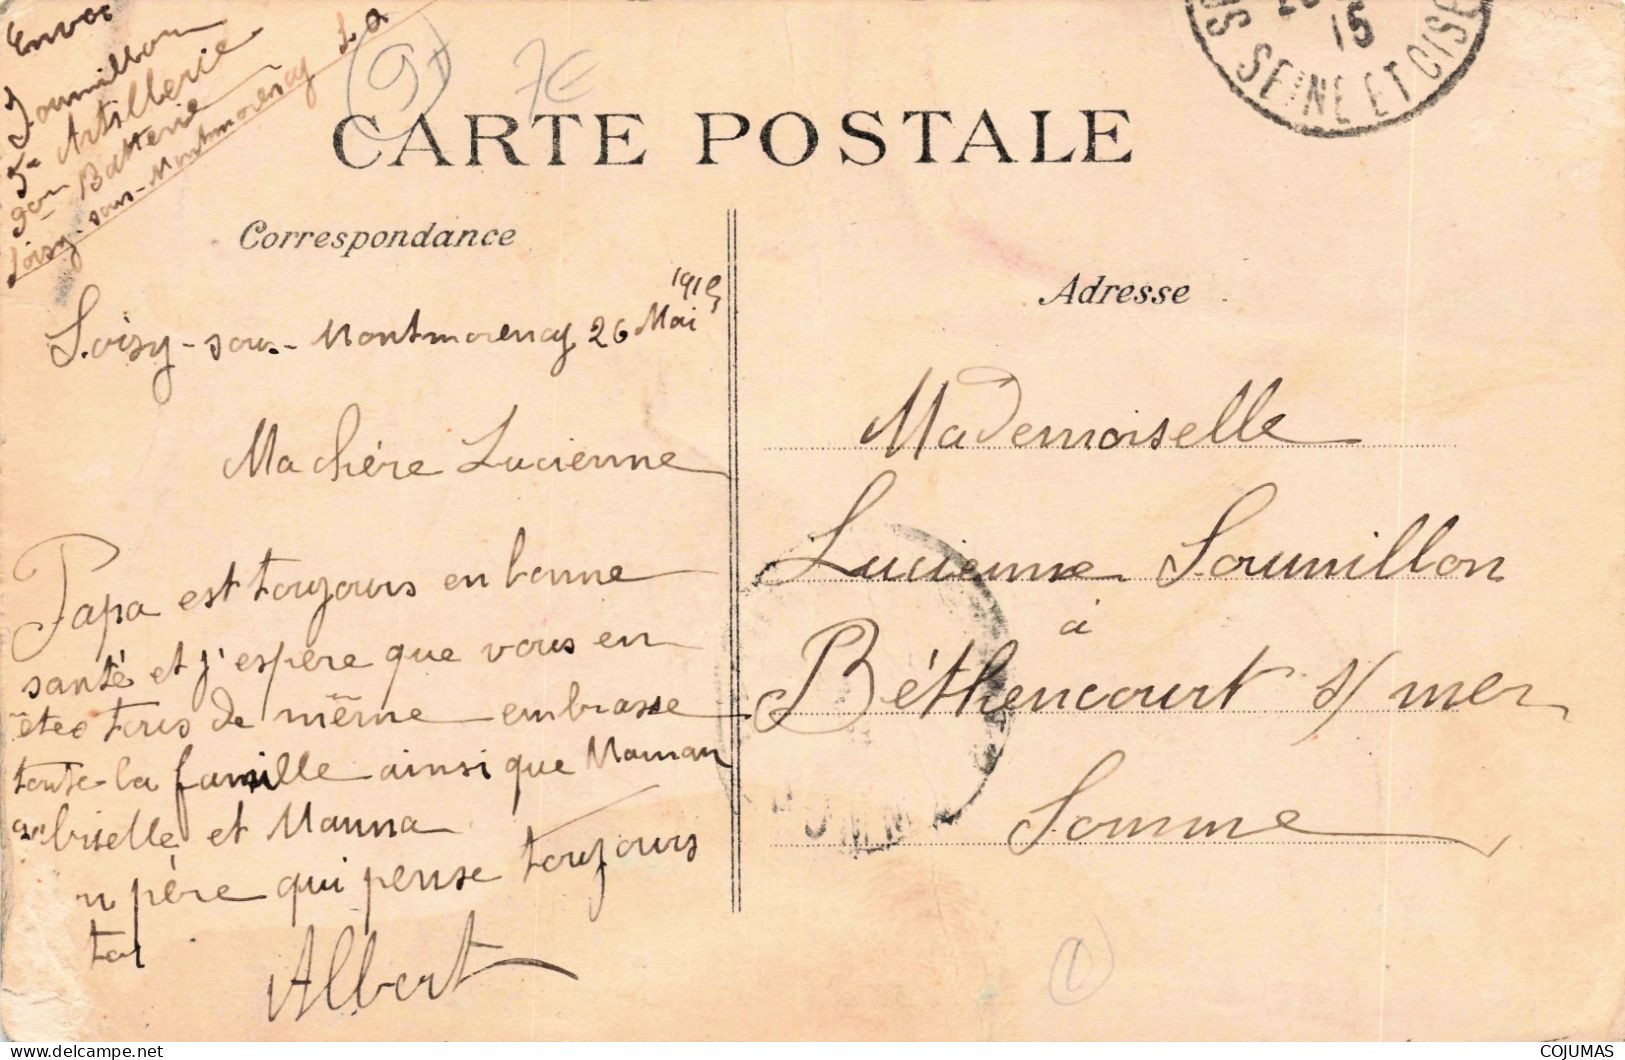 Envoi
Soumillon
5e Artillerie
9em Batterie
Soisy-sous-Montmorency S.O
9+
7E
SEINE ET OISE
15
CARTE POSTALE
Correspondance
Adresse
1915
Soisy-sous-Montmorency 26 Mai
Ma chère Lucienne
Papa est toujours en bonne
santé et j'espère que vous en
êtes tous de même embrasse
toute la famille ainsi que Maman
et Mauna
père qui pense toujours
toi
Albert
Mademoiselle
Lucienne Soumillon
à
Béthencourt s/ mer
Somme
1
COJUMAS